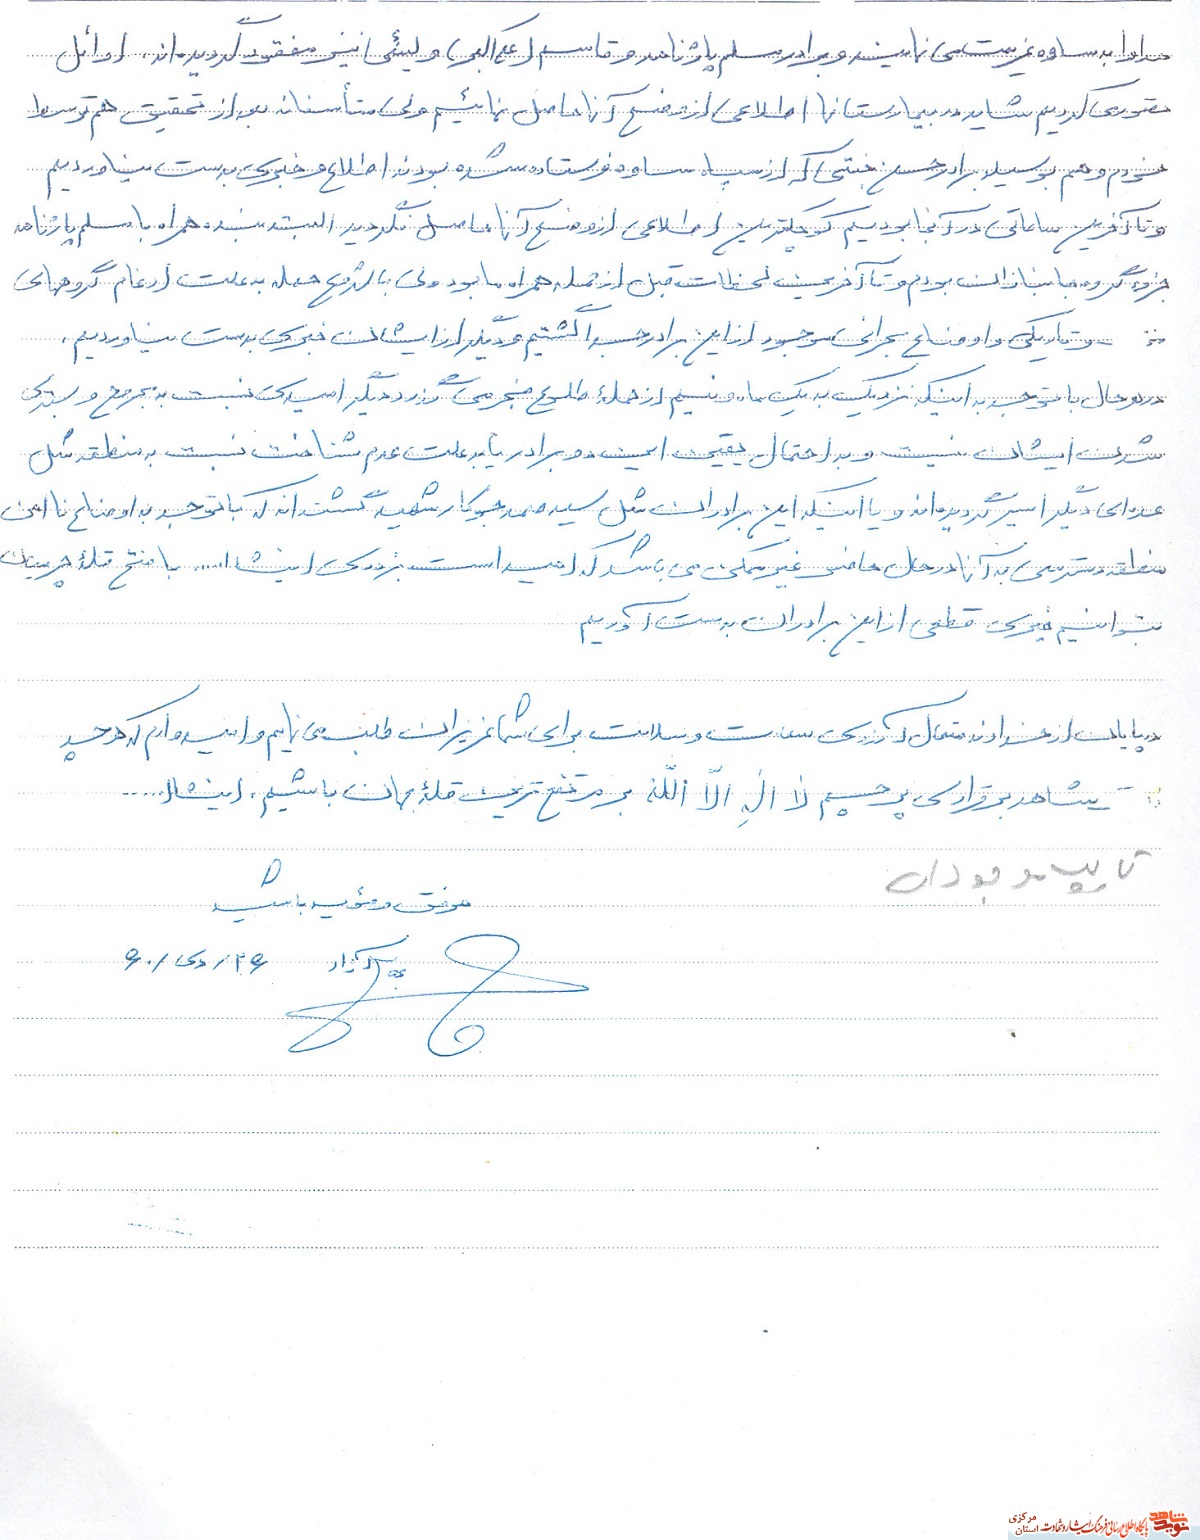 مداوا به ساوه عزیمت می نمایند و برادر مسلم پاژنامه و قاسم علی اکبری و لیثی نیز مفقود گردیده‌اند. اوائل
تصور می کردیم شاید در بیمارستانها اطلاعی از وضع آنها حاصل نمائیم ولی متأسفانه بعد از تحقیق هم توسط
خودم و هم بوسیله برادر حسن جنتی که از سپاه ساوه فرستاده شده بودند اطلاع و خبری بدست نیاوردیم
و تا آخرین ساعاتی در آنجا بودیم کوچکترین اطلاعی از وضع آنها حاصل نگردید البته بنده همراه با مسلم پاژنامه
جزء گروه جانبازان بودم و تا آخرین لحظات قبل از حمله همراه ما بود ولی با شروع حمله به علت ادغام گروههای
و تاریکی و اوضاع بحرانی موجود از این برادر جدا گشتیم و دیگر از ایشان خبری بدست نیاوردیم.
در هر حال با توجه به اینکه نزدیک به یک ماه و نیم از حمله طلوع فجر می گذرد دیگر امیدی نسبت به مجروح و بستری
شدن ایشان نیست و به احتمال یقین این دو برادر یا به علت عدم شناخت نسبت به منطقه مثل
عده‌ای دیگر اسیر گردیده‌اند و یا اینکه این برادران مثل سید صمد شهید گشته‌اند که با توجه به اوضاع ناامن
منطقه دسترسی به آنها در حال حاضر غیر ممکن می باشد که امید است بزودی انشاا... با فتح قله چرمیان
بتوانیم خبری قطعی از این برادران بدست آوریم
در پایان از خداوند متعال آرزوی سعادت و سلامت برای شما عزیزان طلب می نمایم و امیدوارم که هر چه
شاهد برقراری پرچم لا اله الا الله بر مرتفع ترین قله جهان باشیم. انشاا.....
تایپ
موفق و مؤید باشید
۲۶/دی/۶۰
نوید شاهد
پایگاه اطلاع رسانی فرهنگ ایثار و شهادت استان مرکزی